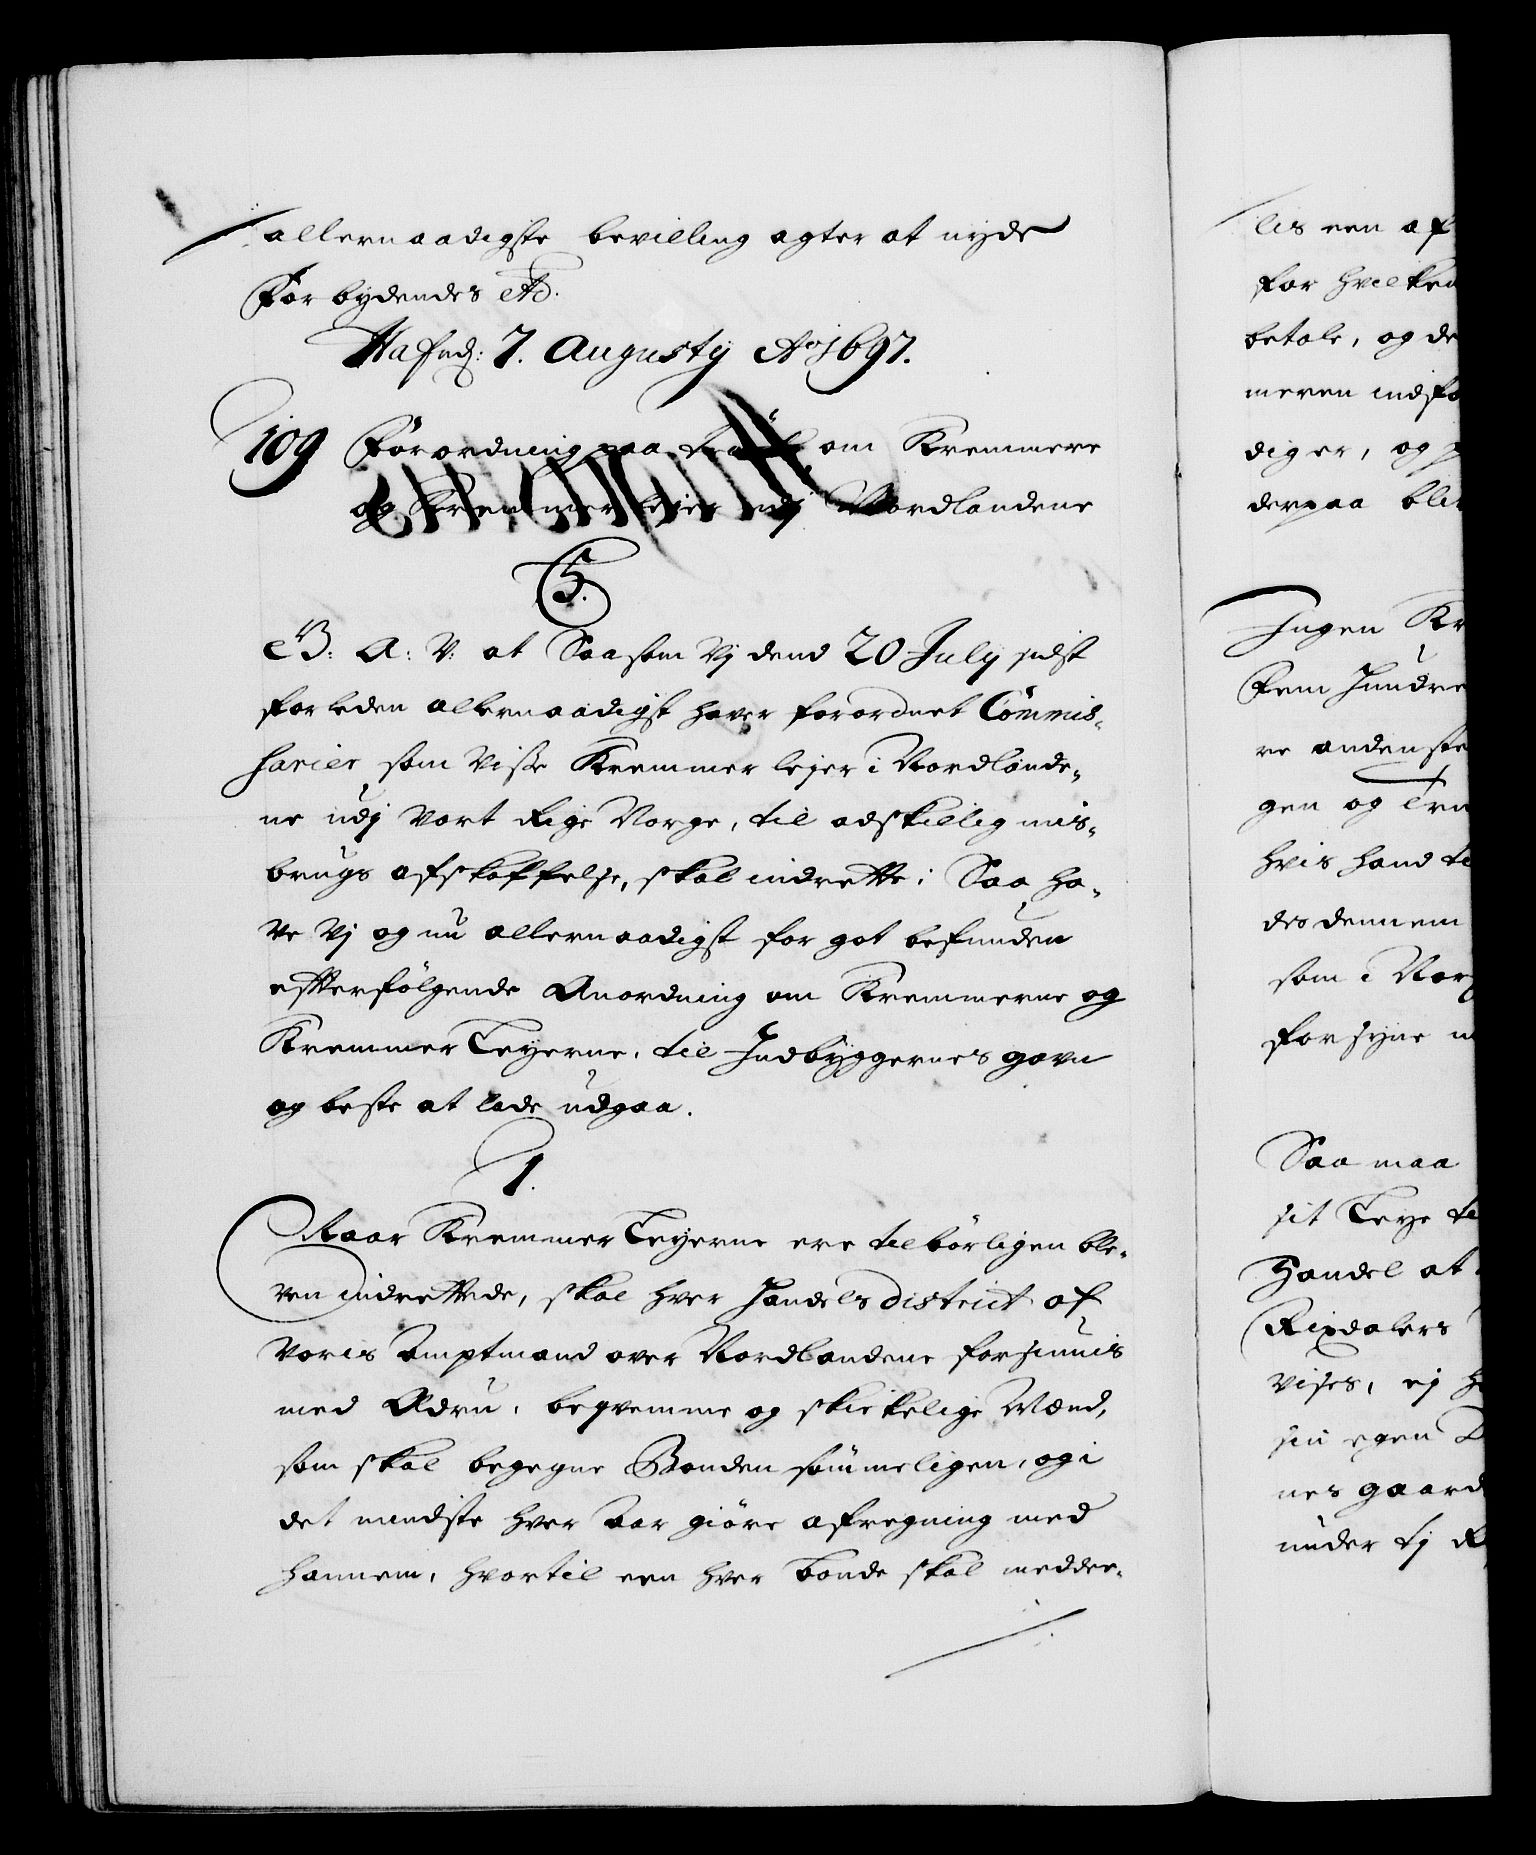 allernaadigste bevilling agter at nyde
Forbydendes etc:
Hafnd: 7. Augusty Ao 1697.
109 Forordning paa om Kremmere
og Kremmer lejer udj Nordlandene
C5.
G: A: V: at Saasom Vj dend 20 July sidst
forleden allernaadigst haver forordnet Commis-
sarier som visse Kremmer lejer i Nordlande-
ne udj vort Rige Norge, til adskillig mis-
brugs afskaffelse, skal indrette; Saa ha-
ve Vj og nu allernaadigst for got befunden
efterfölgende Anordning om Kremmerne og
Kremmer Leyerne, til Indbyggernes gavn
og beste at lade udgaa.
1.
Naar Kremmer Leyerne ere tilbörligen ble-
ven indrettede, skal hver Handels district af
Voris Amptmand over Nordlandene forsiunis
med Ædru, beqvemme og skickelige Mænd,
som skal begegne Bonden sömmeligen, og i
det mindste hver Aar giöre afregning med
hannem, hvortil een hver bonde skal meddee-
lis een af
for hvilken
betale, og de
meren indfø
diger, og
derpaa bli
Ingen Kr
Fem Hundre
re andenste
gen og
hvis hand
des dennem
som i Norg
forsyne
Saa maa
sit Leye
Handel at
Rixdalers
vises, ej
sin egen
nes gaard
under tj R